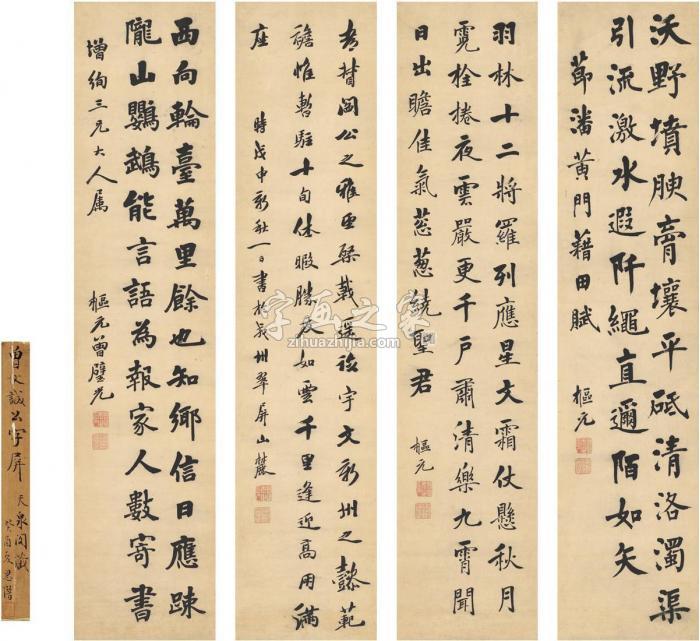 沃野墳腴膏壤平砥清洛濁渠
引流激水遐阡繩直邇陌如矢
節潘黃門藉田賦
樞元
羽林十二將羅列應星文霜仗懸秋月
霓旌捲夜雲嚴更千戶肅清樂九霄聞
日出瞻佳氣葱葱繞聖君
樞元
都督閻公之雅望棨戟遥臨宇文新州之懿範
襜帷暫駐十旬休暇勝友如雲千里逢迎高朋滿
座
時戊申新秋一日書於
州翠屏山麓
西向輪臺萬里餘也知鄉信日應踈
隴山鸚鵡能言語為報家人數寄書
增絢三兄大人屬
樞元曾璧光
曾文誠公字屏
天泉閣藏
字画之家
zihuazhijia.com